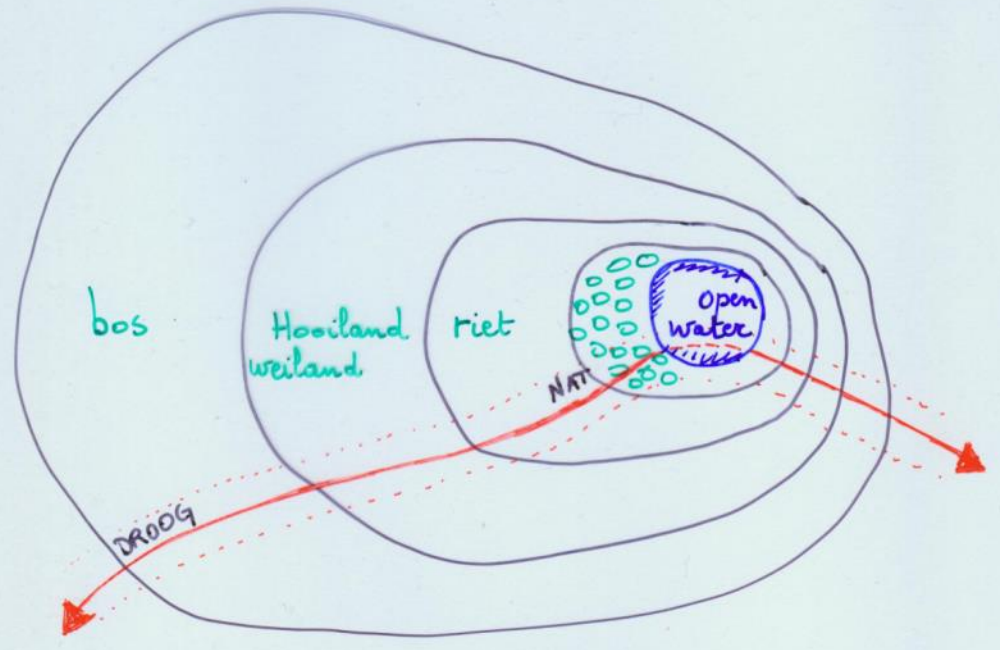 bos
Hooiland
weiland
riet
Open
water
NAT
DROOG